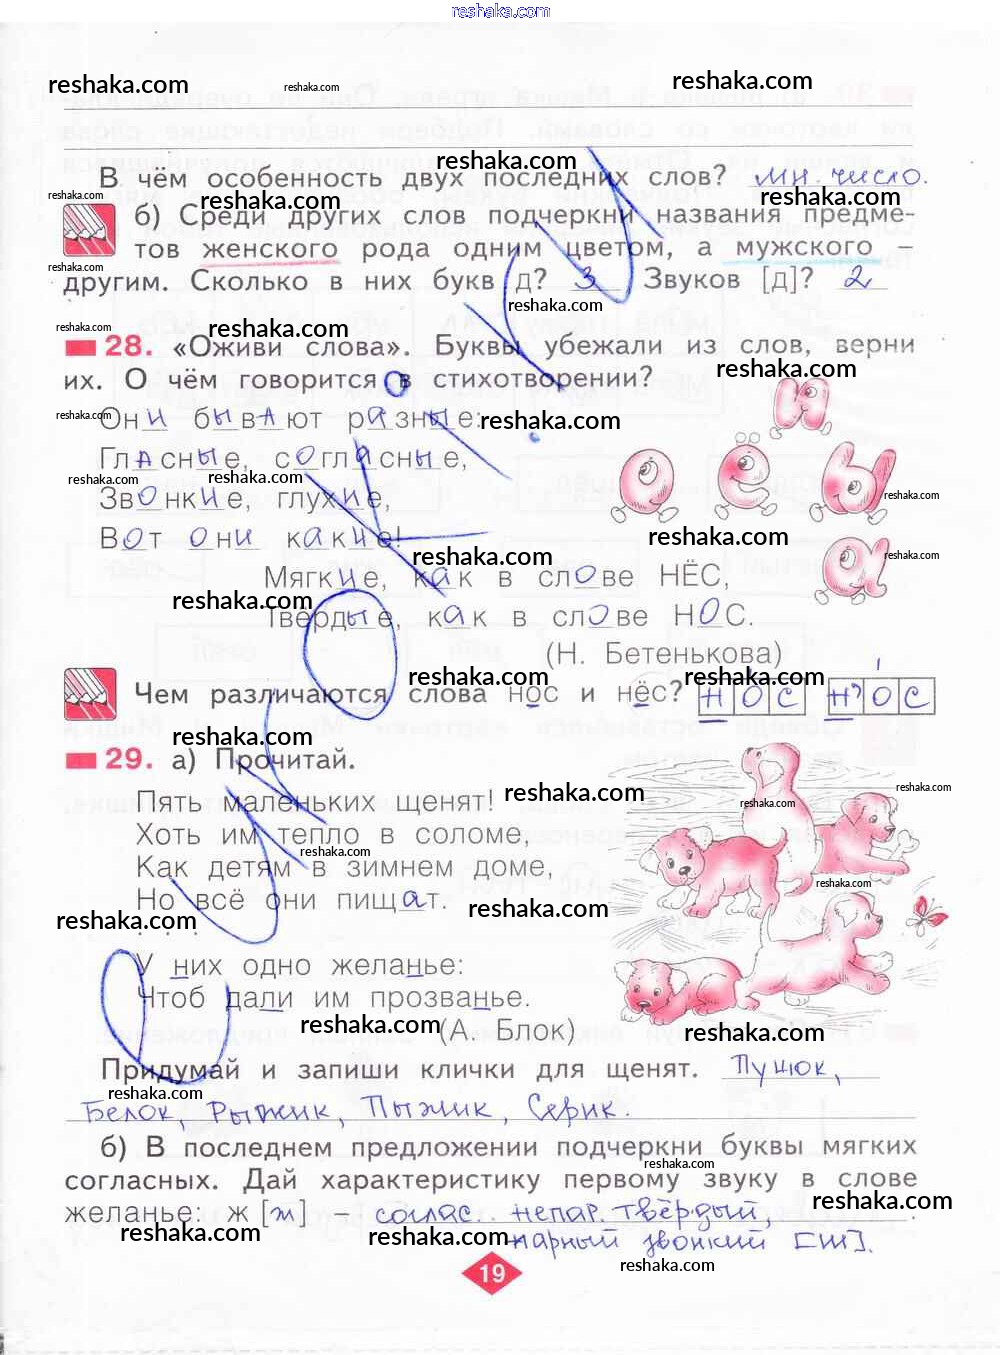 reshaka.com
reshaka.com reshaka.com reshaka.com
reshaka.com
В чём особенность двух последних слов? мн. число.
reshaka.com reshaka.com reshaka.com
б) Среди других слов подчеркни названия предме-
тов женского рода одним цветом, а мужского –
reshaka.com
другим. Сколько в них букв д? 3 Звуков [д]? 2
reshaka.com
reshaka.com reshaka.com
28. «Оживи слова». Буквы убежали из слов, верни
reshaka.com
их. О чём говорится в стихотворении?
reshaka.com reshaka.com
Они бывают разные:
Гласные, согласные,
reshaka.com reshaka.com
Звонкие, глухие,
reshaka.com
Вот они какие!
reshaka.com
reshaka.com reshaka.com
Мягкие, как в слове НЁС,
reshaka.com
Твёрдые, как в слове НОС.
(Н. Бетенькова)
reshaka.com reshaka.com
Чем различаются слова нос и нёс? н о с н' о с
reshaka.com
29. а) Прочитай.
Пять маленьких щенят!
reshaka.com reshaka.com reshaka.com
Хоть им тепло в соломе,
reshaka.com
Как детям в зимнем доме,
reshaka.com
Но всё они пищат.
reshaka.com reshaka.com
У них одно желанье:
Чтоб дали им прозванье.
reshaka.com reshaka.com
(А. Блок)
Придумай и запиши клички для щенят. Пушок,
reshaka.com
Белок, Рыжик, Пыжик, Серик.
б) В последнем предложении подчеркни буквы мягких
reshaka.com
согласных. Дай характеристику первому звуку в слове
reshaka.com
желанье: ж [ж] – соглас. непар. твёрдый,
reshaka.com reshaka.com
парный звонкий [ш].
reshaka.com
19